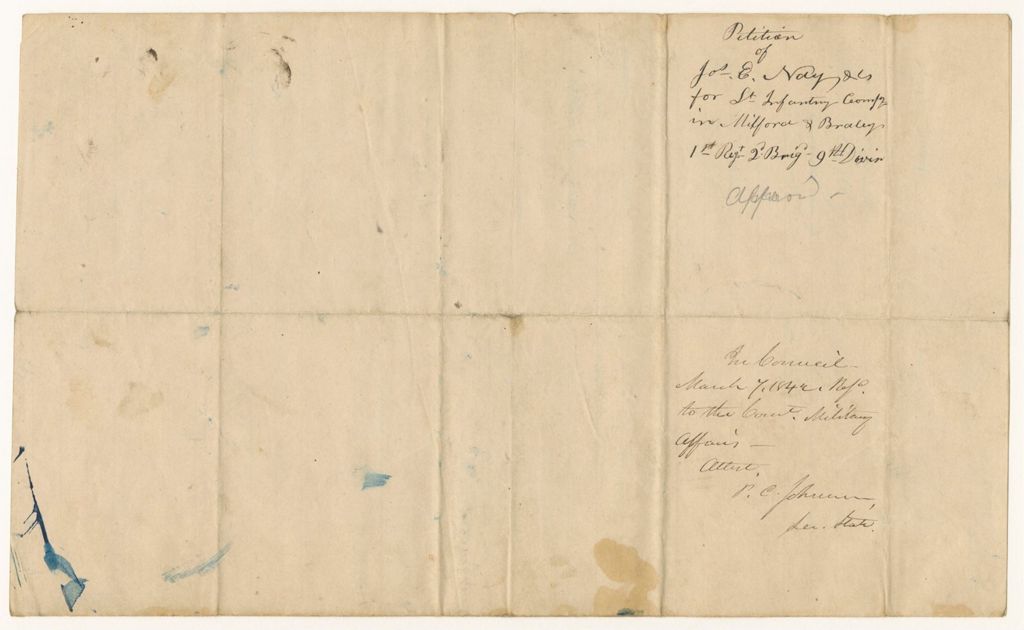 Petition
of
Jos. E. Nay & als
for Lt. Infantry Compy
in Milford & Bradley
1st Regt 2d Brigr 9th Divin
Appro'd -
In Council
March 7, 1842. Refd.
to the Comt. Military
Affairs —
Attest,
P. C. Johnson,
Sec. State.